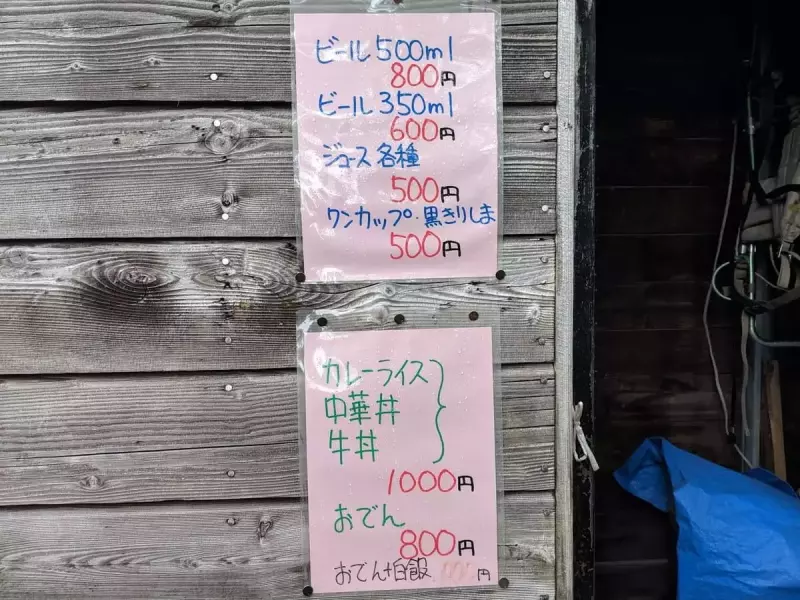 ビール500ml
800円
ビール350ml
600円
ジュース各種
500円
ワンカップ・黒きりしま
500円
カレーライス
中華丼
牛丼
1000円
おでん
800円
おでん+白飯
円